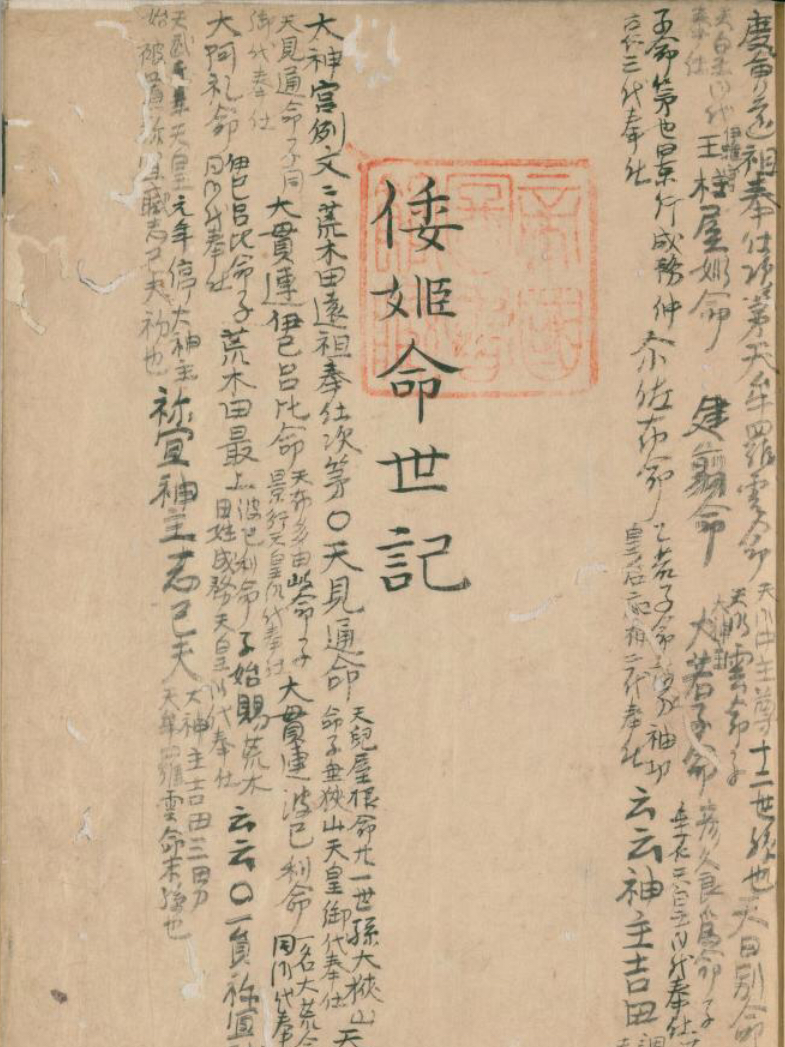 度會遠祖奉仕次第天牟羅雲命
十二世孫也天日別命
天村雲命子
玉柱屋姫命
大若子命
彦久良為命子
子命第也景行成務仲
三代奉仕
尓佐布命
乙若子命
神功
皇后
二代奉仕
云云神主吉田
倭姫命世記
太神宮例文ニ荒木田遠祖奉仕次第〇天見通命
天兒屋根命廿一世孫大狭山
命子垂狭山天皇御代奉仕
天
天見通命子同
御代奉仕
大貫連伊己呂比命
天布多由岐命子
景行天皇御代奉仕
大貫連波己利命
一名大荒命
同御代奉
大阿礼命
伊己呂比命子
同御代奉仕
荒木田最上
波己利命子始賜荒木
田姓成務天皇御代奉仕
云云〇一員祢宜
天皇元年停大神主
始被置祢宜職志己夫初也
祢宜神主志己夫
大神主吉田三男
天牟羅雲命末孫也